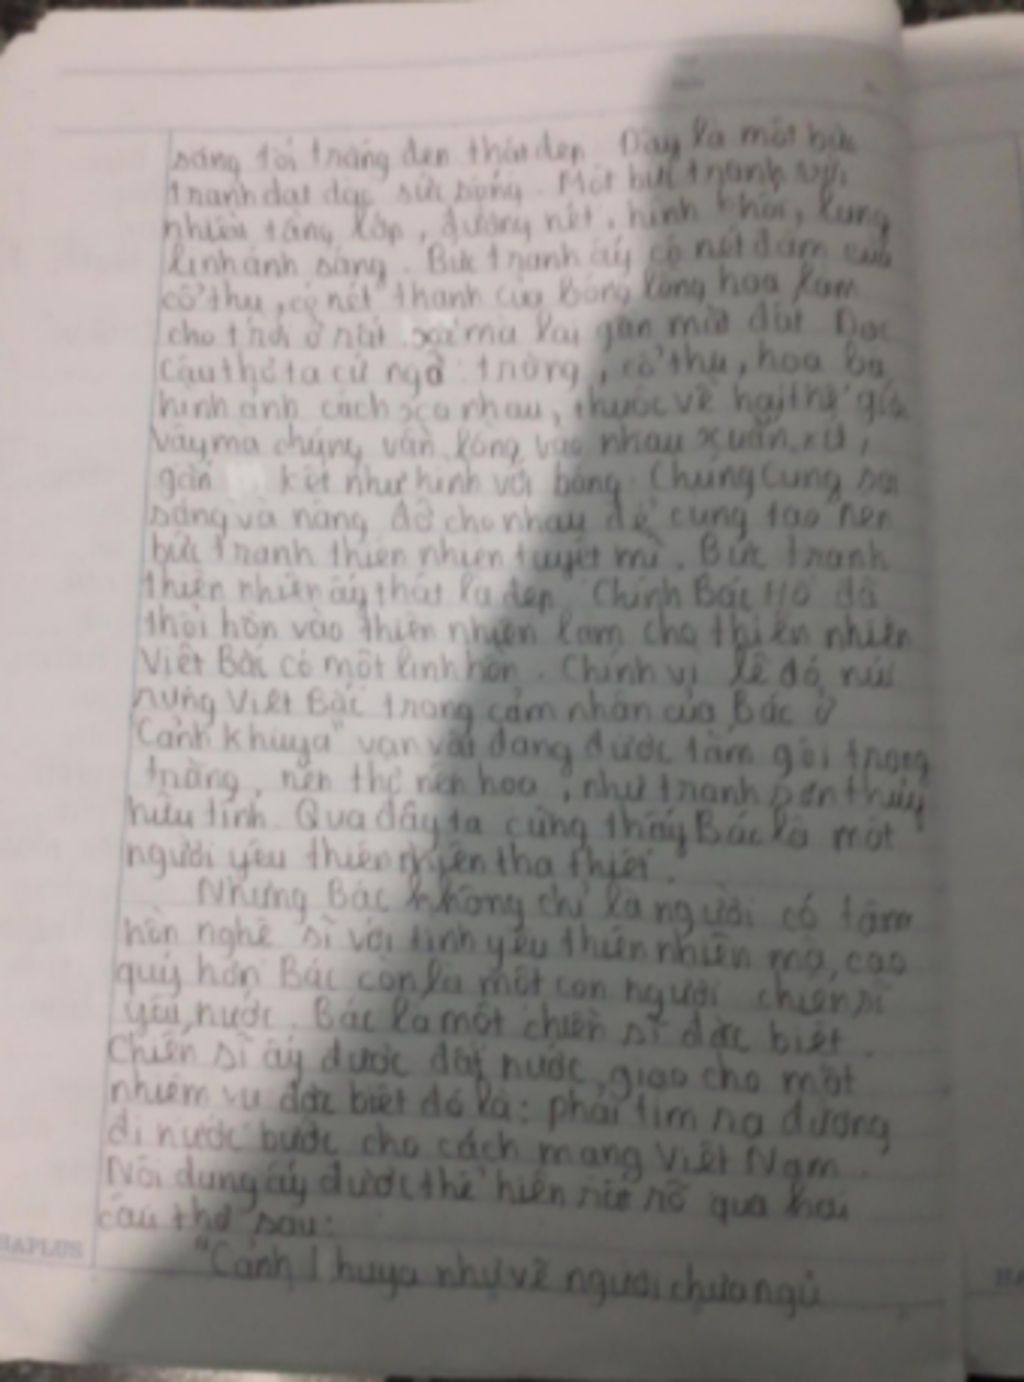 sáng tối trắng đen thật đẹp. Đây là một bức
tranh dạt dạc sức sống. Một bức tranh với
nhiều tầng lớp, đường nét, hình khối, lung
linh ánh sáng. Bức tranh ấy có nét đậm của
cổ thụ, có nét thanh của bóng lồng hoa làm
cho trời ở rất xa mà lại gần mặt đất. Đọc
câu thơ ta cứ ngỡ trăng, cổ thụ, hoa ba
hình ảnh cách xa nhau, thuộc về hai thế giới
vậy mà chúng vẫn lồng vào nhau
gắn kết như hình với bóng. Chúng cùng soi
sáng và nâng đỡ cho nhau để cùng tạo nên
bức tranh thiên nhiên tuyệt mĩ. Bức tranh
thiên nhiên ấy thật là đẹp. Chính Bác Hồ đã
thổi hồn vào thiên nhiên làm cho thiên nhiên
Việt Bắc có một linh hồn. Chính vì lẽ đó núi
rừng Việt Bắc trong cảm nhận của Bác ở
"Cảnh khuya" vạn vật đang được tắm gội trong
trăng, nên thơ nên hoa, như tranh sơn thủy
hữu tình. Qua đây ta cũng thấy Bác là một
người yêu thiên nhiên tha thiết.
Nhưng Bác không chỉ là người có tâm
hồn nghệ sĩ với tình yêu thiên nhiên mà, cao
quý hơn Bác còn là một con người chiến sĩ
yêu nước. Bác là một chiến sĩ đặc biệt.
Chiến sĩ ấy được đất nước, giao cho một
nhiệm vụ đặc biệt đó là: phải tìm ra đường
đi nước bước cho cách mạng Việt Nam.
Nội dung ấy được thể hiện rất rõ qua hai
câu thơ sau:
"Cảnh khuya như vẽ người chưa ngủ
HAPLUS